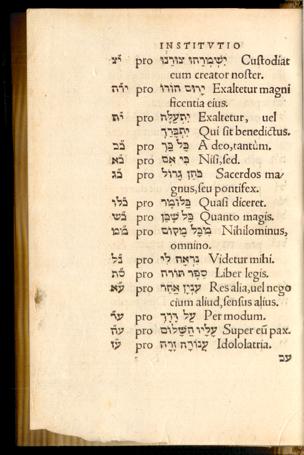 INSTITVTIO
י״צ pro יִשְׁמְרֵהוּ צוּרֵנוּ Custodiat
eum creator noster.
יר״ה pro יָרוּם הוֹדוֹ Exaltetur magni
ficentia eius.
י״ת pro יִתְעַלֶּה Exaltetur, uel
יִתְבָּרֵךְ Qui sit benedictus.
כ״כ pro כָּל כָּךְ A deo, tantùm.
כ״א pro כִּי אִם Nisi, sed.
כ״ג pro כֹּהֵן גָּדוֹל Sacerdos ma/
gnus, seu pontifex.
pro כְּלוֹמַר Quasi diceret.
כ״ש pro כָּל שֶׁכֵּן Quanto magis.
מ״מ pro מִכָּל מָקוֹם Nihilominus,
omnino.
נ״ל pro נִרְאֶה לִי Videtur mihi.
ס״ת pro סֵפֶר תּוֹרָה Liber legis.
ע״א pro עִנְיָן אַחֵר Res alia, uel nego
cium aliud, sensus alius.
ע״ד pro עַל דֶּרֶךְ Per modum.
ע״ה pro עָלָיו הַשָּׁלוֹם Super eũ pax.
ע״ז pro עֲבוֹדָה זָרָה Idololatria.